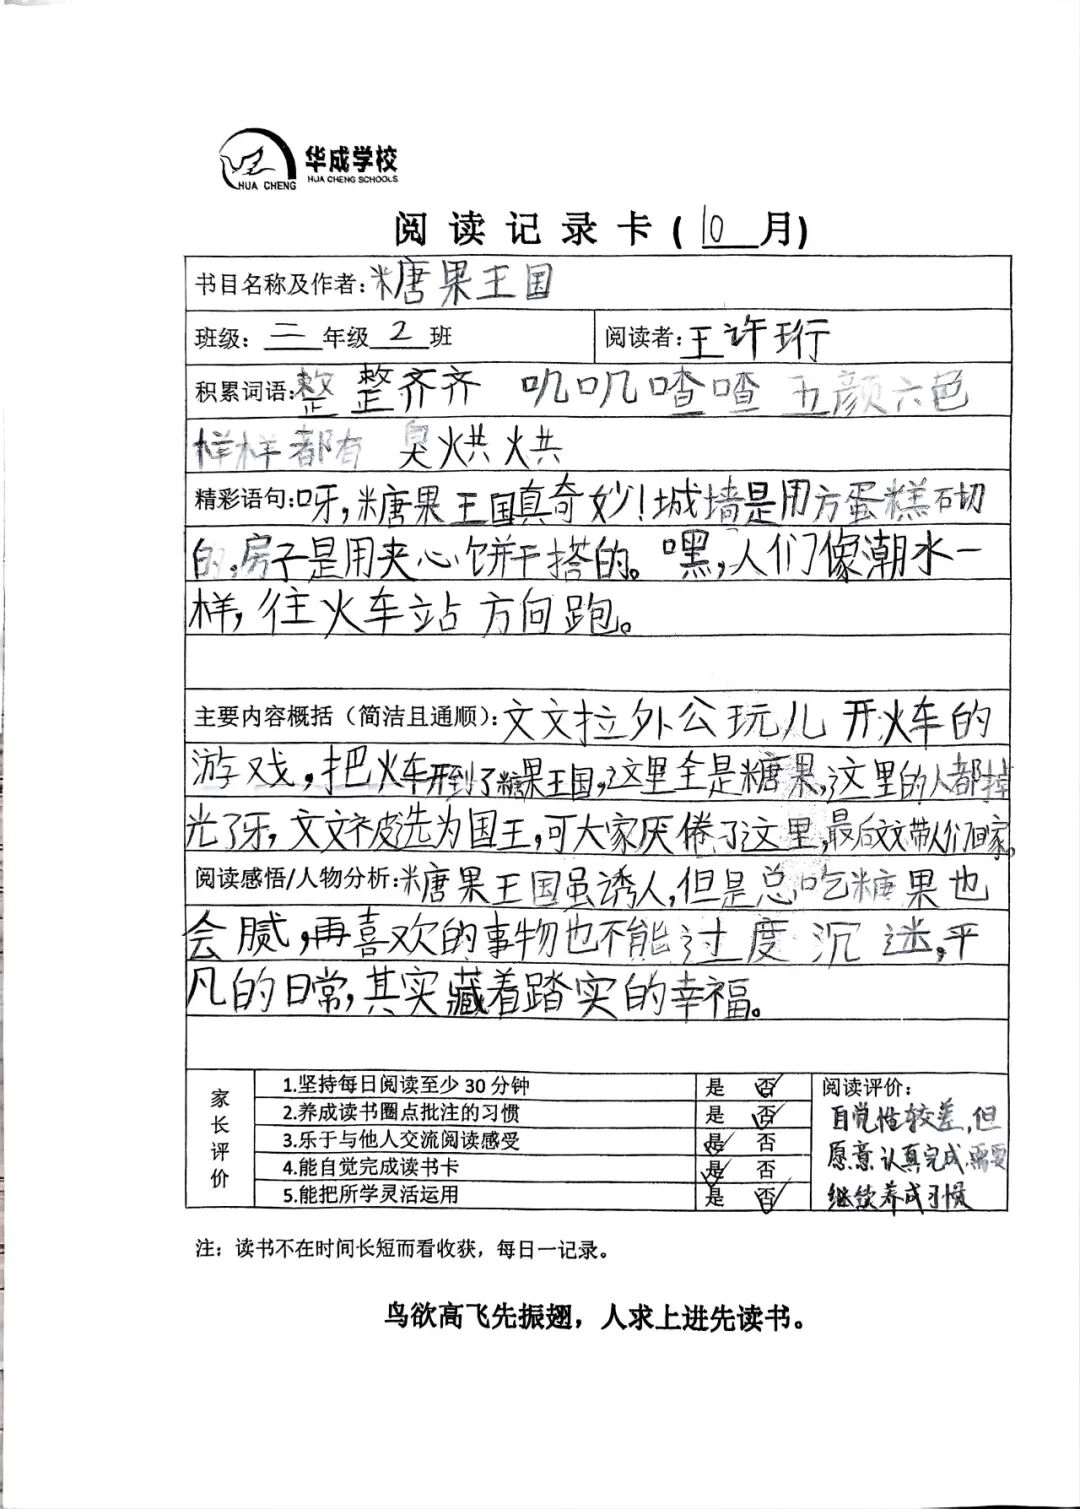 华成学校
HUA CHENG SCHOOLS
HUA CHENG
阅读记录卡(10月)
书目名称及作者:糖果王国
班级:三年级2班 阅读者:王许珩
积累词语:整整齐齐 叽叽喳喳 五颜六色
样样都有 臭烘烘
精彩语句:呀,糖果王国真奇妙!城墙是用方蛋糕砌
的,房子是用夹心饼干搭的。嘿,人们像潮水一
样,往火车站方向跑。
主要内容概括(简洁且通顺):文文拉外公玩儿开火车的
游戏,把火车开到了糖果王国,这里全是糖果,这里的人都掉
光了牙,文文被选为国王,可大家厌倦了这里,最后文文带人们回家,
阅读感悟/人物分析:糖果王国虽诱人,但是总吃糖果也
会腻,再喜欢的事物也不能过度沉迷,平
凡的日常,其实藏着踏实的幸福。
家长评价
1.坚持每日阅读至少30分钟 是 否
2.养成读书圈点批注的习惯 是 否
3.乐于与他人交流阅读感受 是 否
4.能自觉完成读书卡 是 否
5.能把所学灵活运用 是 否
阅读评价:
自觉性较差,但
愿意认真完成,需要
继续养成习惯
注:读书不在时间长短而看收获,每日一记录。
鸟欲高飞先振翅,人求上进先读书。